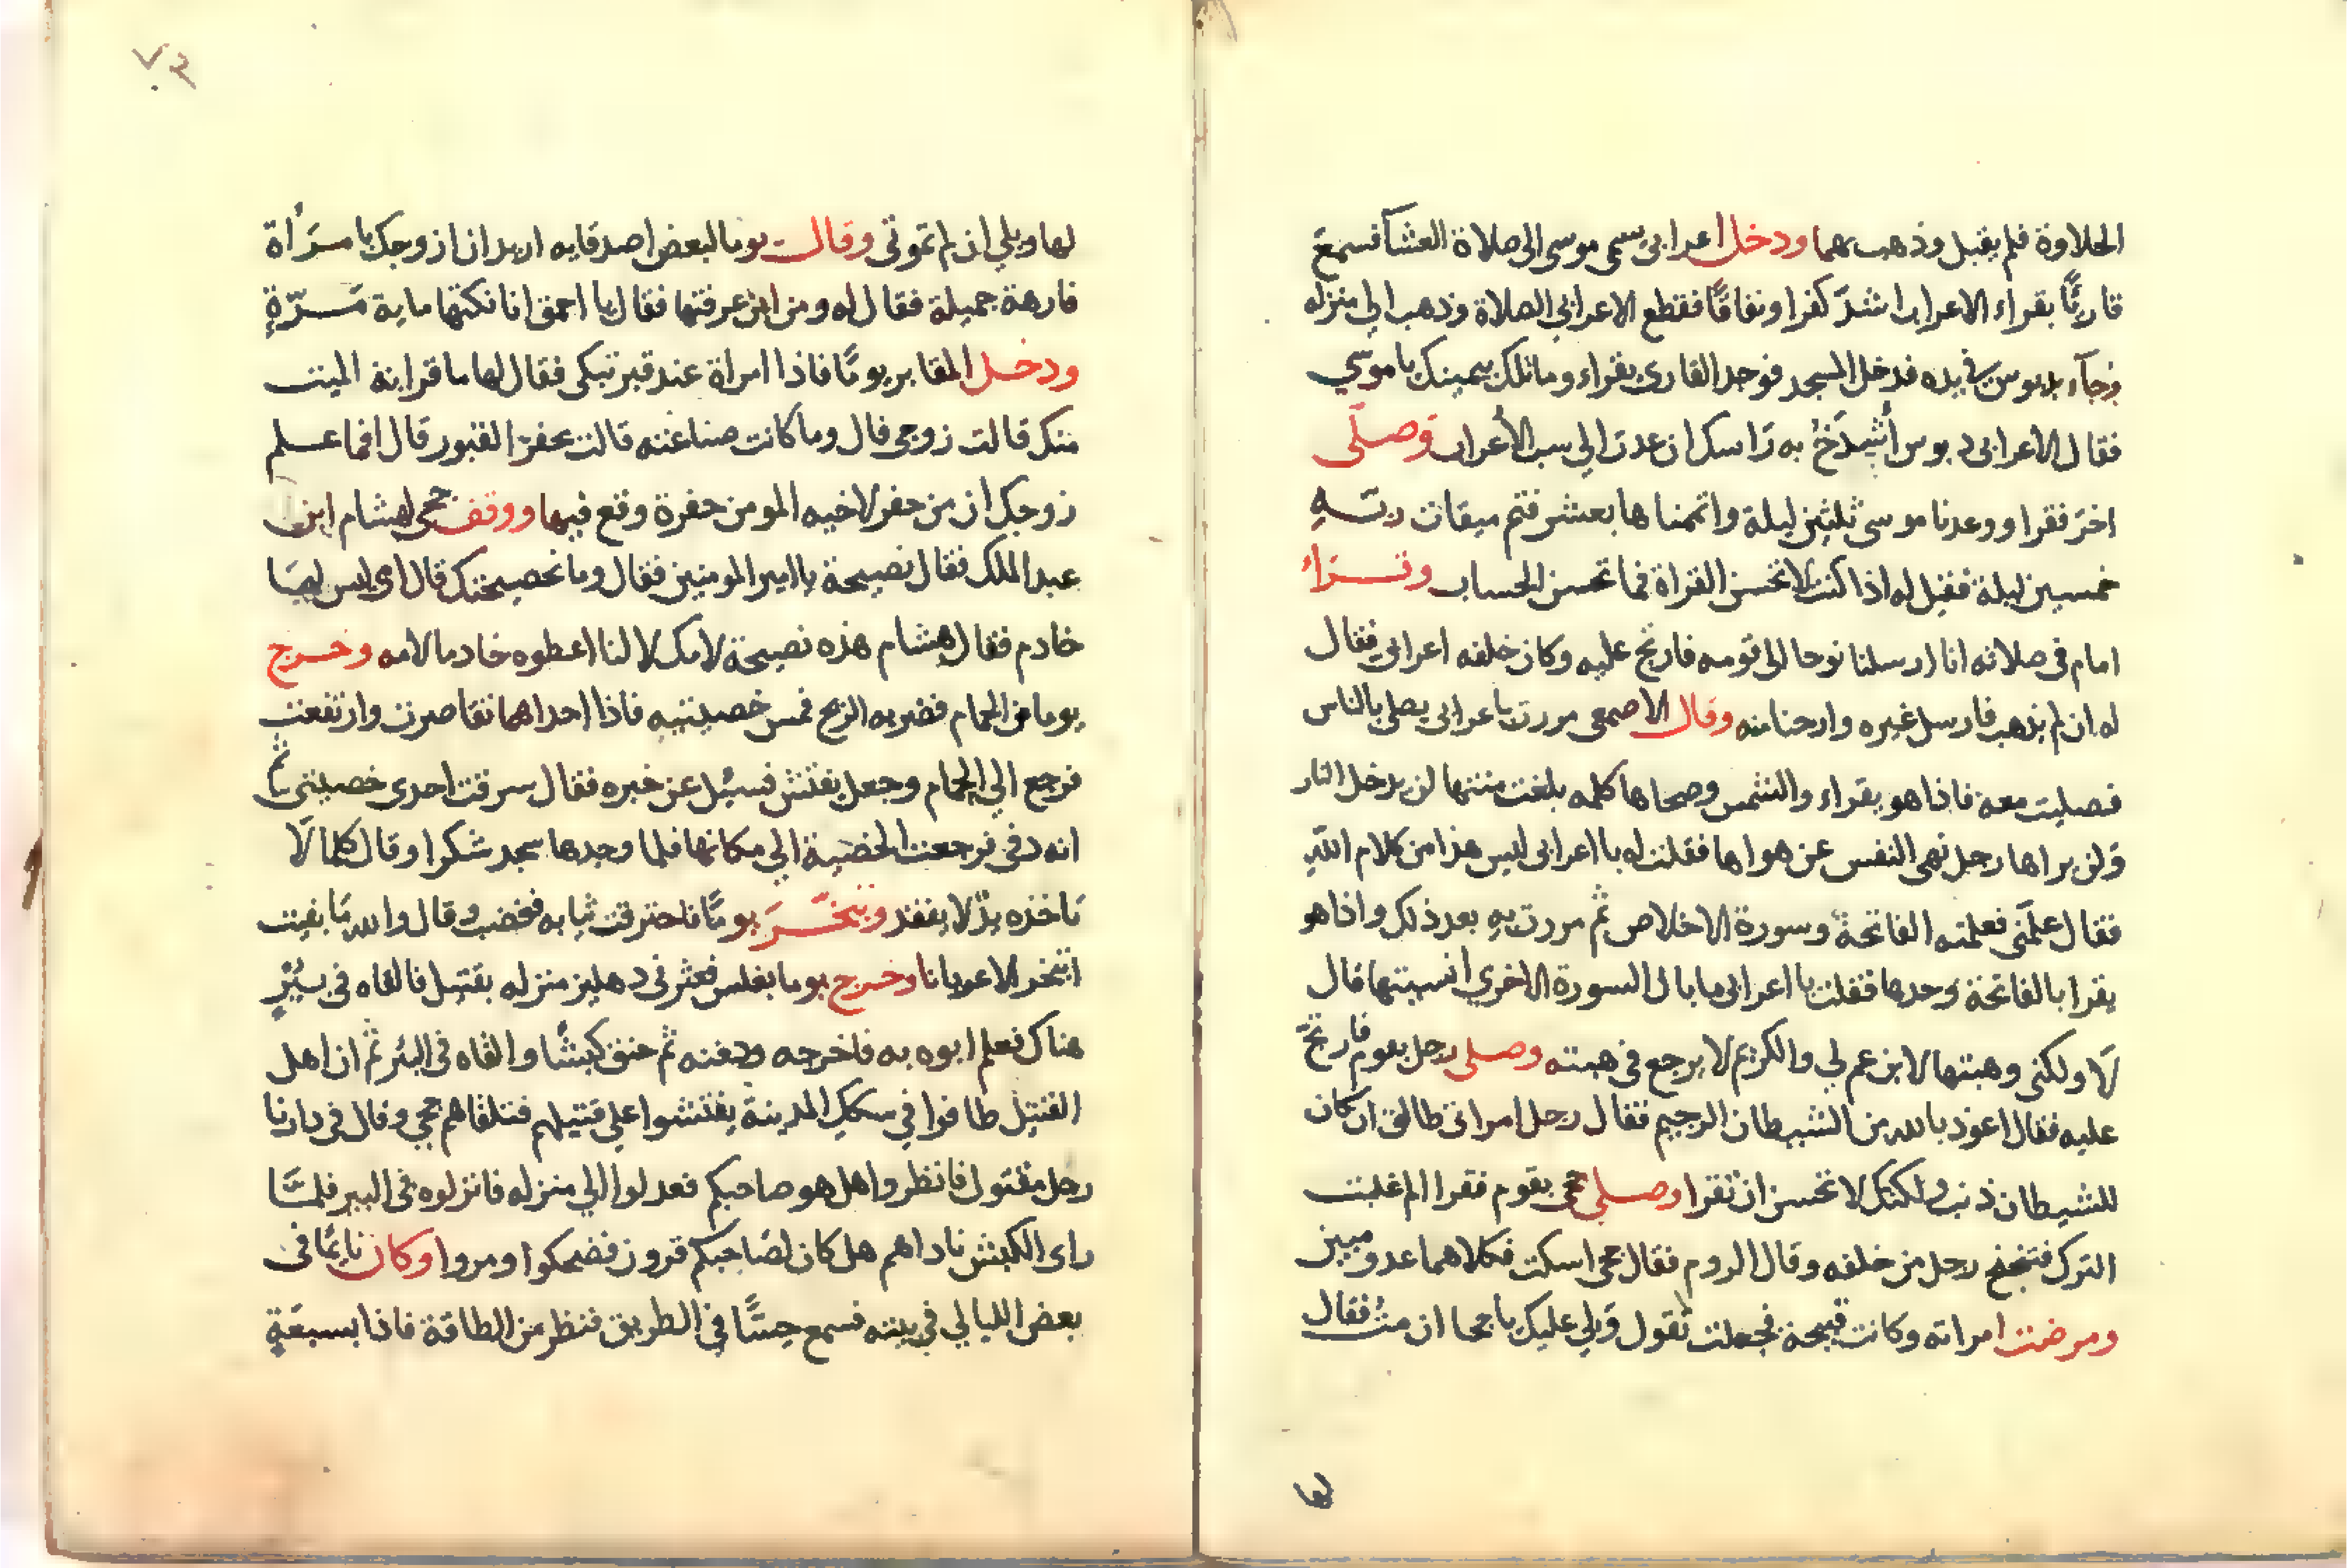 الحلاوة فلم يقبل وذهب بهما ودخل اعرابي يسمى موسى الى صلاة العشآ فسمع
قاريًّا يقراء الاعراب اشدّ كفرا ونفاقًا فقطع الاعرابي الصلاة وذهب الي منزله
وجآء بدبوس في يده فدخل المسجد فوجد القارى يقراء وما تلك بيمينك يا موسي
فقال الاعرابى دبوس أشدخ به راسك ان عدت الي سب الأعراب وصلّى
اخر فقرا ووعدنا موسى ثلثين ليلة واتممناها بعشر فتم ميقات ربّهِ
خمسين ليلة فقيل له اذا كنت لا تحسن القراة فما تحسن الحساب وقراء
امام فى صلاته انا ارسلنا نوحا الى قومه فارتج عليه وكان خلفه اعرابي فقال
له ان لم يذهب فارسل غيره وارحنا منه وقال الاصمعى مررت باعرابي يصلى بالناس
فصليت معه فاذا هو يقراء والشمس وضحاها كلمه بلغت منتهها لن يدخل النار
ولن يراها رجل نهى النفس عن هواها فقلت له يا اعرابى ليس هذا من كلام الله
فقال علمّنى فعلمته الفاتحة وسورة الاخلاص ثم مررت بهِ بعد ذلك واذا هو
يقرا بالفاتحة وحدها فقلت يا اعرابى ما بال السورة الاخري انسيتها قال
لَا ولكنى وهبتها لابن عم لي والكريم لا يرجع فى هبته وصلى رجل بقوم فارتجّ
عليه فقال اعوذ بالله من الشيطان الرجيم فقال رجل امراتى طالق ان كان
للشيطان ذنب ولكنك لا تحسن ان تقرا وصلي جحى بقوم فقرا الم غلبت
الترك فتنحنح رجل من خلفه وقال الروم فقال جحى اسكت فكلاهما عدو مبين
ومرضت امراته وكانت قبيحة فجعلت تقول ويلي عليك يا جحا ان متُ فقال
لها
٧٣
لها ويلي ان لم تموتى وقالت يوما لبعض اصدقايه اريد ان ازوجك بامرَأة
فارهة جميلة فقال له ومن اين عرفتها فقال يا احمق انا نكتها ماية مَرّةٍ
ودخل المقابر يومًا فاذا امراة عند قبر تبكى فقال لها ما قرابة الميت
منك قالت زوجى قال وما كانت صناعته قالت يحفر القبور قال افما علم
زوجك ان من حفر لاخيه المومن حفرة وقع فيها ووقف جحى لهشام ابن
عبد الملك فقال نصيحة يا امير المومنين فقال وما نصيحتك قال امى ليس لهَا
خادم فقال هشام هذه نصيحة لامك لا لنا اعطوه خادما لامه وخرج
يوما من الحمام فضربه الريح فمس خصيتيه فاذا احداهما تقاصرت وارتفعت
فرجع الي الحمام وجعل يفتش فسيُل عن خبره فقال سرقت احدى خصيتى ثم
انه دفى فرجعت الخصية الي مكانها فلما وجدها سجد شكرا وقال كلما لَا
تاخذه يدٌ لا يفقد وتبخّرَ يومًا فاحترقت ثيابه فغضب وقال والله مَا بقيت
اتبخر الا عريانا وخرج يوما بغلس فعثر فى دهليز منزله بقتيل فالقاه فى بئْرٍ
هناك فعلم ابوه به فاخرجه ودفنه ثم خنق كبشًا والقاه فى البئر ثم ان اهل
القتيل طافوا في سكك المدينة يفتشوا علي قتيلهم فتلقاهم جحي وقال فى دارنا
رجل مقتول فانظروا هل هو صاحبكم فعدلوا الي منزله فانزلوه فى البير فلمَّا
راى الكبش ناداهم هل كان لصَاحِبكم قرون فضحكوا ومروا وكان نايمًا فى
بعض الليالي في بيته فسمع حِسًّا في الطريق فنظر من الطاقة فاذا بسبعَةٍ